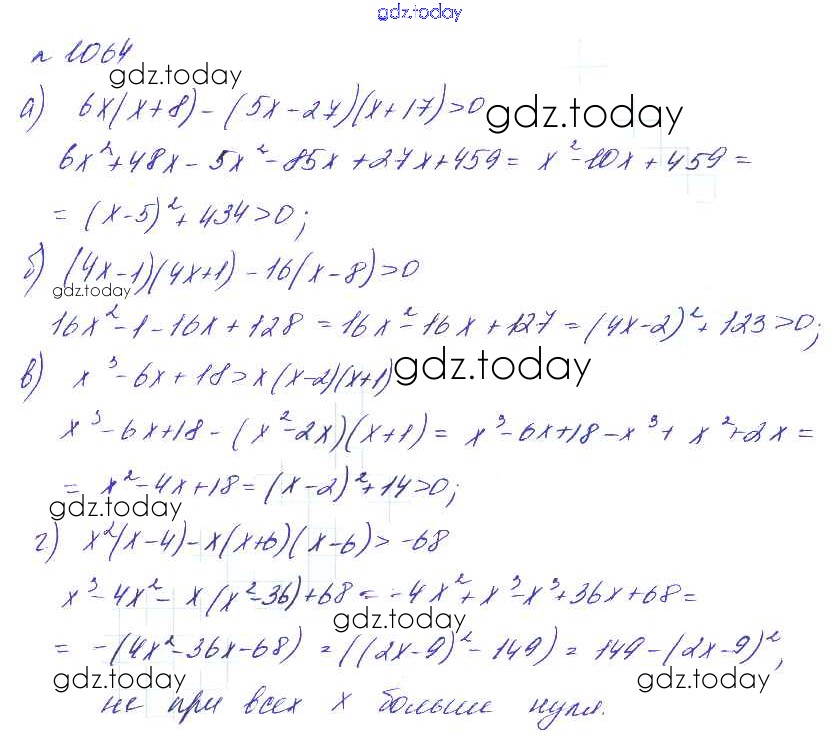 gdz.today
n 1064
gdz.today
а) 6x(x+8)-(5x-27)(x+17)>0
gdz.today
6x²+48x-5x²-85x+27x+459= x²-10x+459=
= (x-5)²+434>0;
б) (4x-1)(4x+1)-16(x-8)>0
gdz.today
16x²-1-16x+128=16x²-16x+127=(4x-2)²+123>0;
в) x³-6x+18>x(x-2)(x+1)
gdz.today
x³-6x+18-(x²-2x)(x+1)= x³-6x+18-x³+x²+2x=
= x²-4x+18=(x-2)²+14>0;
gdz.today
г) x²(x-4)-x(x+6)(x-6)>-68
x³-4x²-x(x²-36)+68=-4x²+x³-x³+36x+68=
gdz.today
= -(4x²-36x-68)=((2x-9)²-149)=149-(2x-9)²,
gdz.today
gdz.today
не при всех x больше нуля.